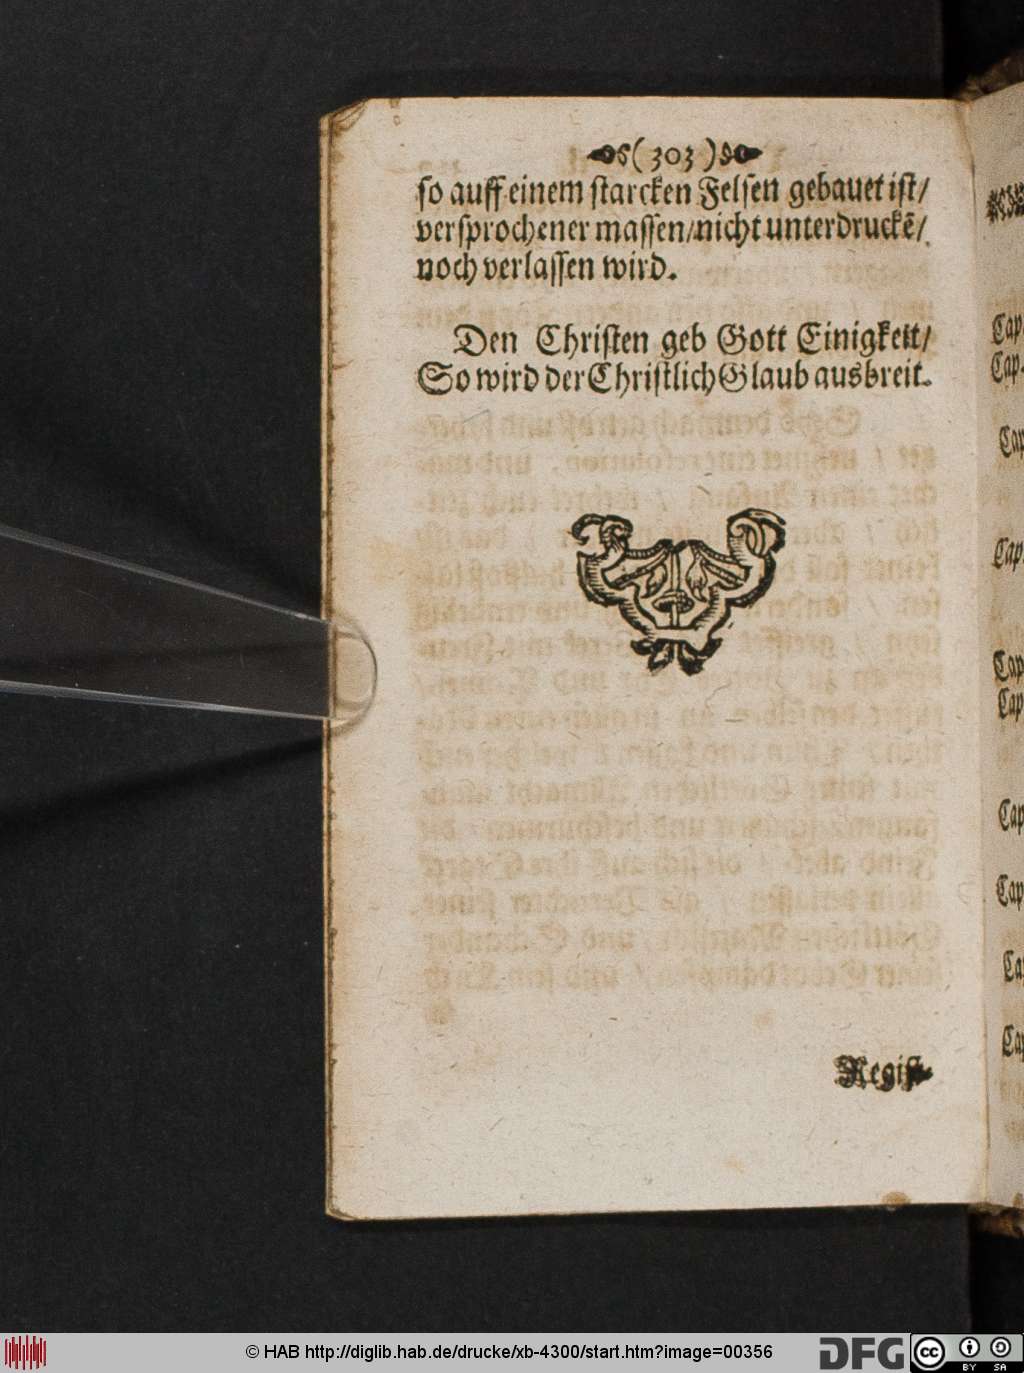 ( 303 )
so auff einem starcken Felsen gebauet ist/
versprochener massen/nicht unterdruckẽ/
noch verlassen wird.
Den Christen geb Gott Einigkeit/
So wird der Christlich Glaub ausbreit.
Regist-
Cap
Cap.
Cap
Cap.
Cap
Cap
Cap
Cap
Ca
Ca
© HAB http://diglib.hab.de/drucke/xb-4300/start.htm?image=00356
DFG
cc
BY SA